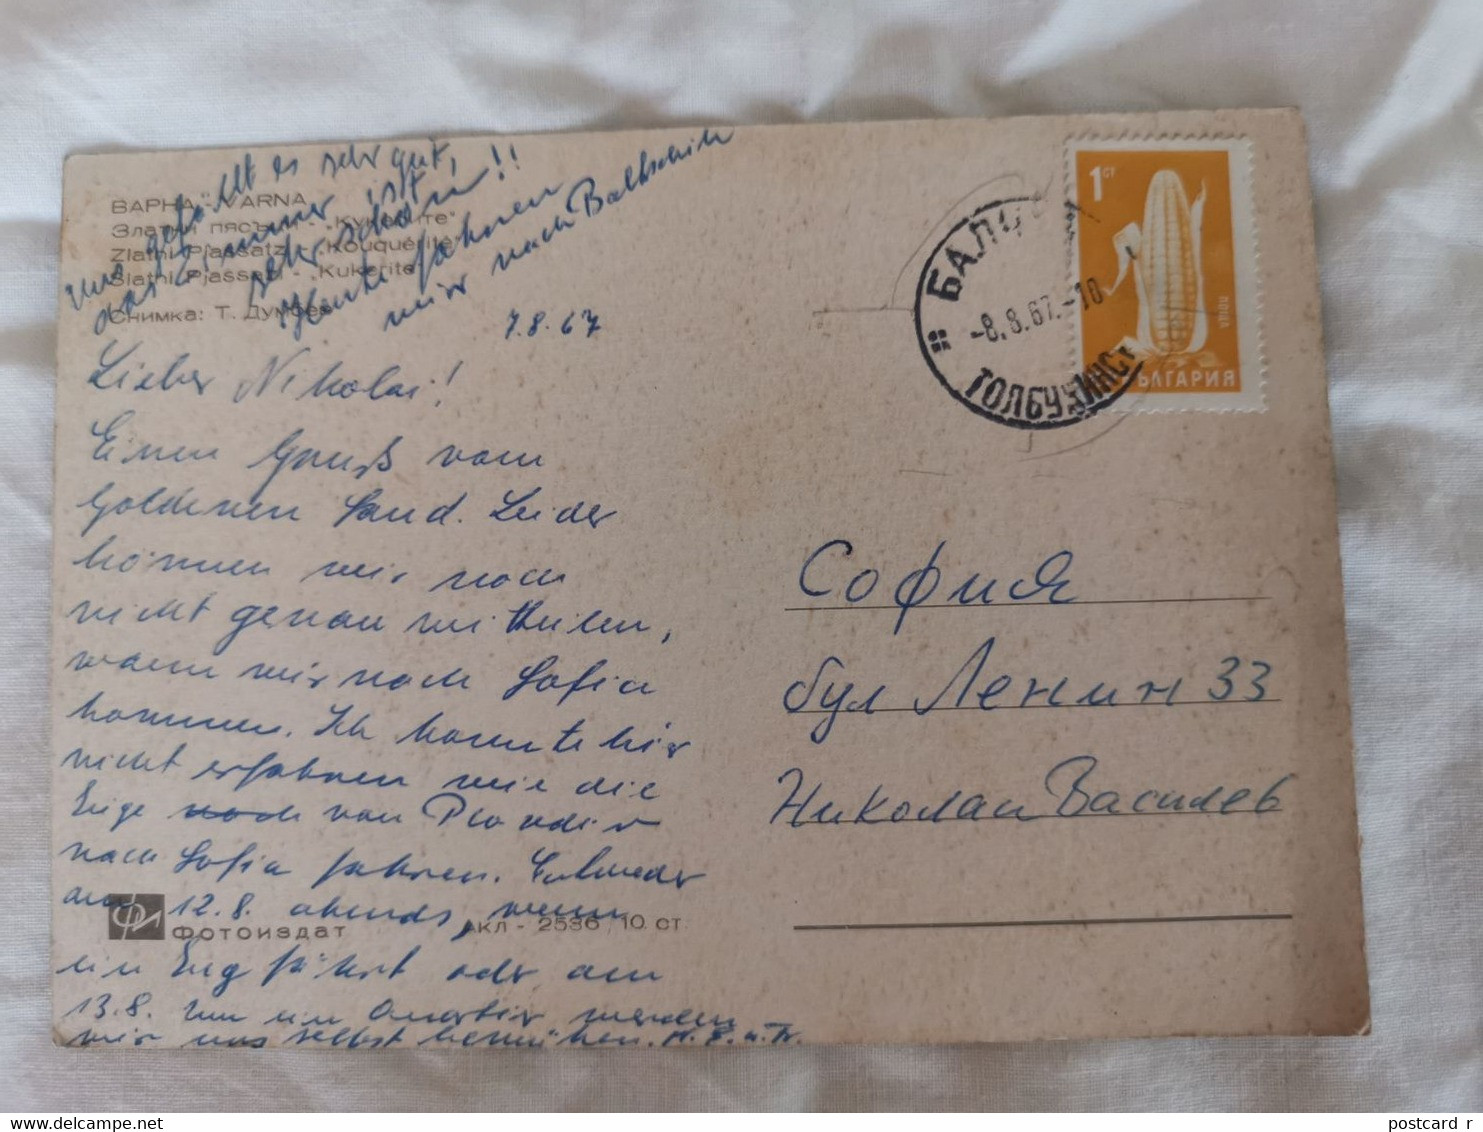 uns gefällt es sehr gut,
das Zimmer ist
sehr schön!!
Heute fahren
wir nach Baltschik
ВАРНА - VARNA
Златни пясъци - "Кукерите"
Zlatni Pjassatzi - "Kouquérité"
Slatni Pjassazi - "Kukerite"
Снимка: Т. Думбев
7.8.67
Lieber Nikolai!
Einen Gruß vom
Goldenen Sand. Leider
können wir noch
nicht genau mitteilen,
wann wir nach Sofia
kommen. Ich konnte hier
nicht erfahren wie die
Züge noch von Plovdiv
nach Sofia fahren. Entweder
am 12.8. abends, wenn
ein Zug fährt oder am
13.8. Um ein Quartier werden
wir uns selbst bemühen.
ФОТОИЗДАТ
АКЛ - 2536 10 ст.
БАЛЧИК
-8.8.67.-10
ТОЛБУХИНС
1 СТ
ПОЩА
БЪЛГАРИЯ
София
бул Ленин 33
Николай Василев
www.delcampe.net
postcard_r